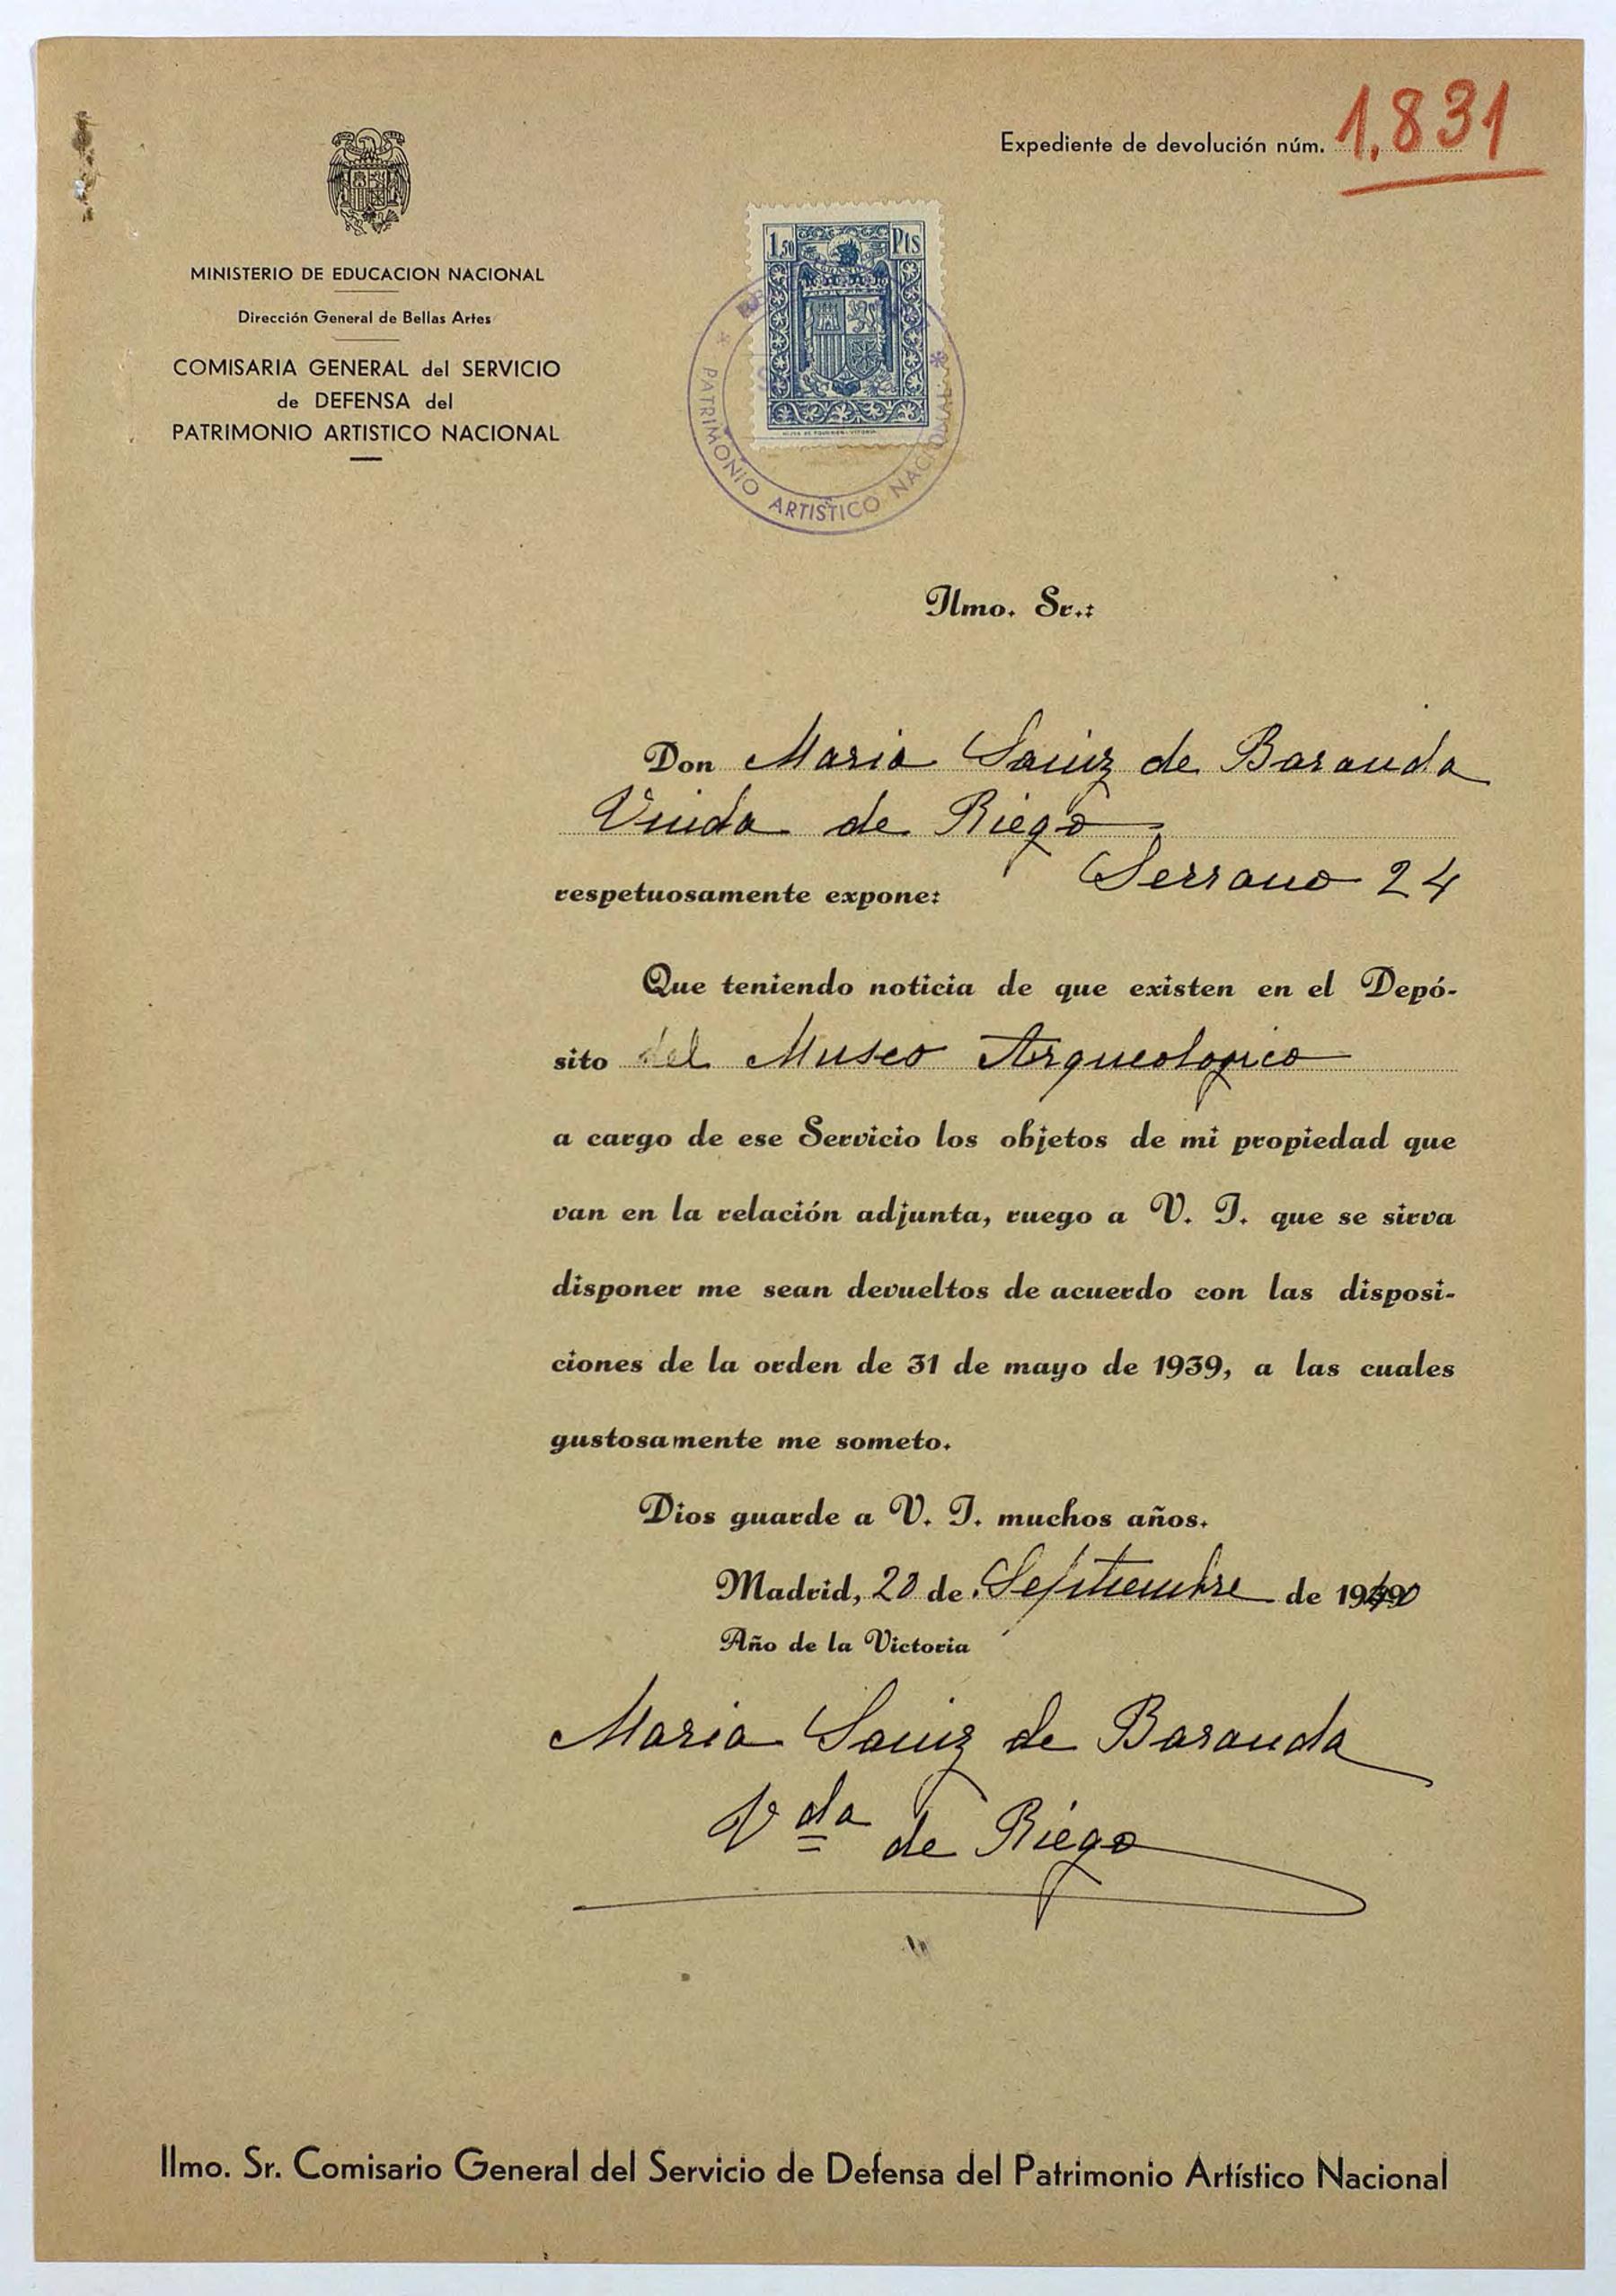 Expediente de devolución núm. 1,831
MINISTERIO DE EDUCACION NACIONAL
Dirección General de Bellas Artes
COMISARIA GENERAL del SERVICIO
de DEFENSA del
PATRIMONIO ARTISTICO NACIONAL
1,50 Pts
PATRIMONIO ARTISTICO NACIONAL
Ilmo. Sr.:
Don Maria Sainz de Baranda
Viuda de Riego
respetuosamente expone: Serrano 24
Que teniendo noticia de que existen en el Depó-
sito del Museo Arqueologico
a cargo de ese Servicio los objetos de mi propiedad que
van en la relación adjunta, ruego a V. I. que se sirva
disponer me sean devueltos de acuerdo con las disposi-
ciones de la orden de 31 de mayo de 1939, a las cuales
gustosamente me someto.
Dios guarde a V. I. muchos años.
Madrid, 20 de Septiembre de 1940
Año de la Victoria
Maria Sainz de Baranda
Vda de Riego
Ilmo. Sr. Comisario General del Servicio de Defensa del Patrimonio Artístico Nacional